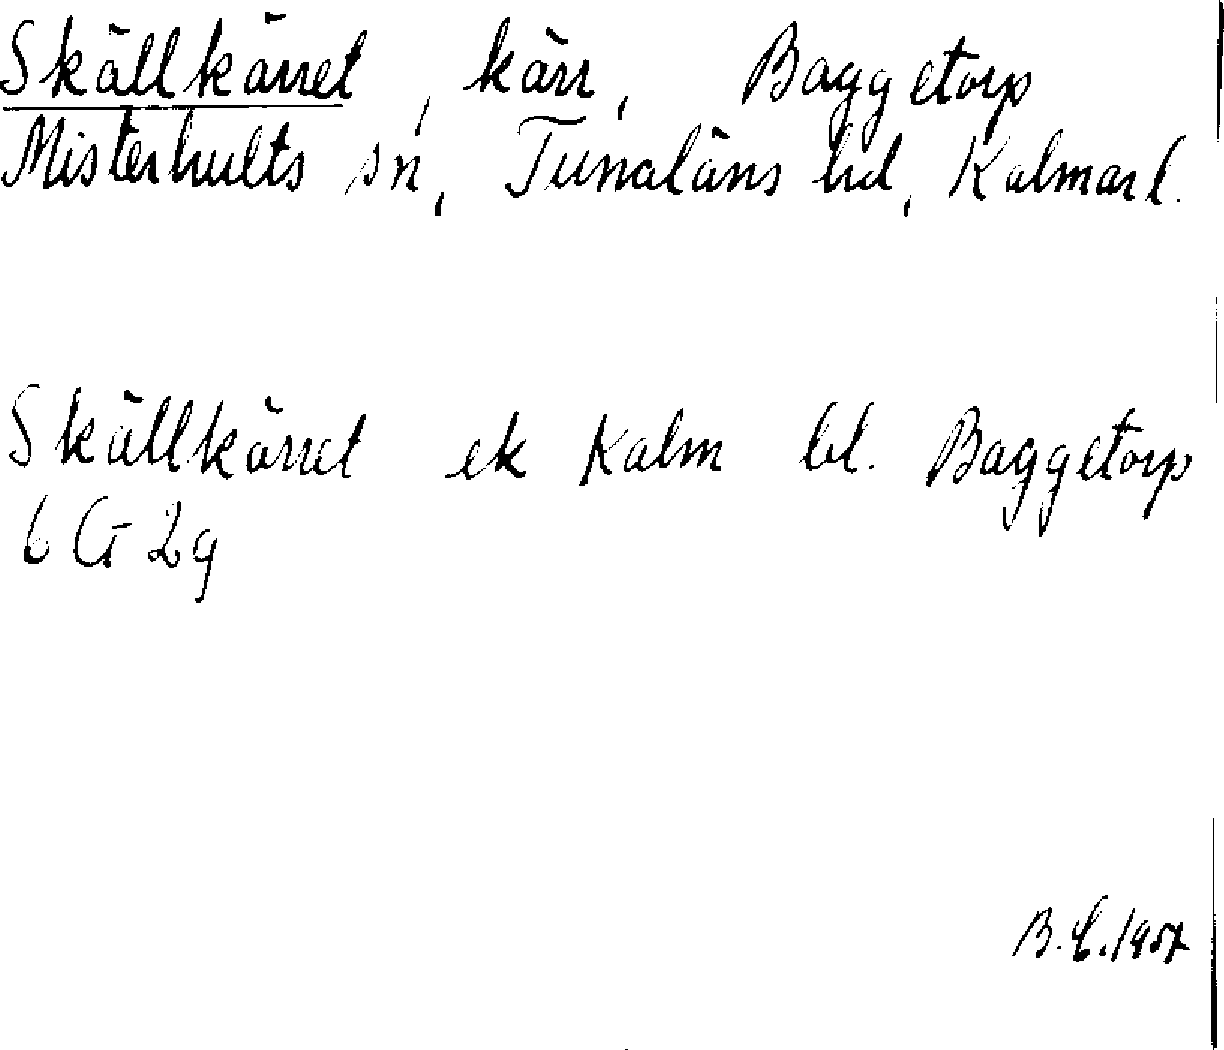 Skällkärret, kärr, Baggetorp
Misterhults sn, Tunaläns hd, Kalmar l.
Skällkärret ek Kalm bl. Baggetorp
6 G 2g
B.E. 1957